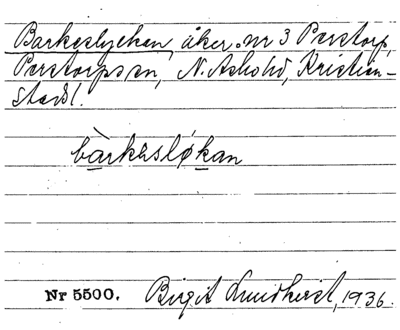 Barkeslyckan, åker. nr 3 Perstorp,
Perstorps sn, N. Åsbo hd, Kristian-
stads l.
bàrkəsløkan
Nr 5500. Birgit Lundkvist, 1936.